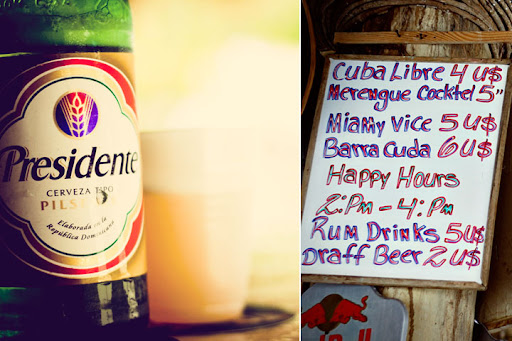 Presidente
CERVEZA TIPO
PILSENER
Elaborada en la
República Dominicana
Cuba Libre 4 u$
Merengue Cocktel 5"
Miamy Vice 5 u$
Barra Cuda 6 u$
Happy Hours
2:Pm - 4:Pm
Rum Drinks 5 u$
Draff Beer 2 u$